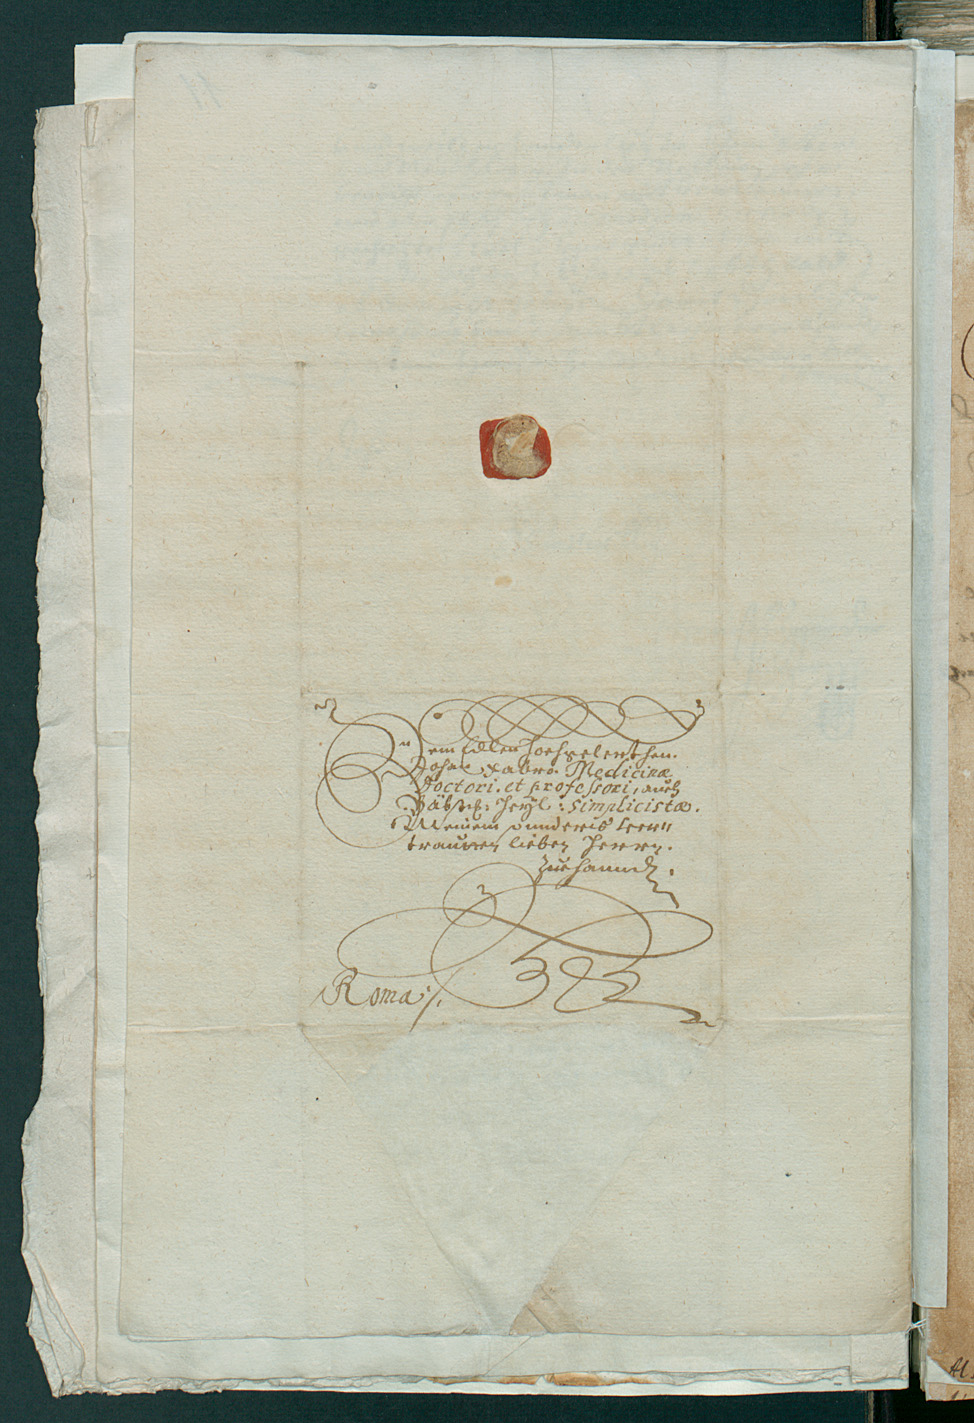 Dem Edlen Hochgelerthen.
Johan Fabro. Medicinæ
Doctori. et professori, auch
Bäbstl: Heyl: Simplicistæ.
Meinem sunders
trauten lieben Herrn.
Zuehannd.
Roma ./.